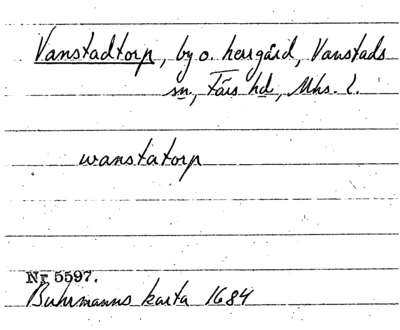 Vanstadtorp, by o. herrgård, Vanstads
sn, Färs hd, Mhs. l.
wanstatorp
Nr 5597.
Buhrmanns karta 1684